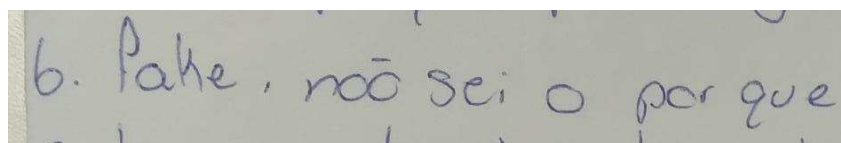 6. Pake, não sei o por que